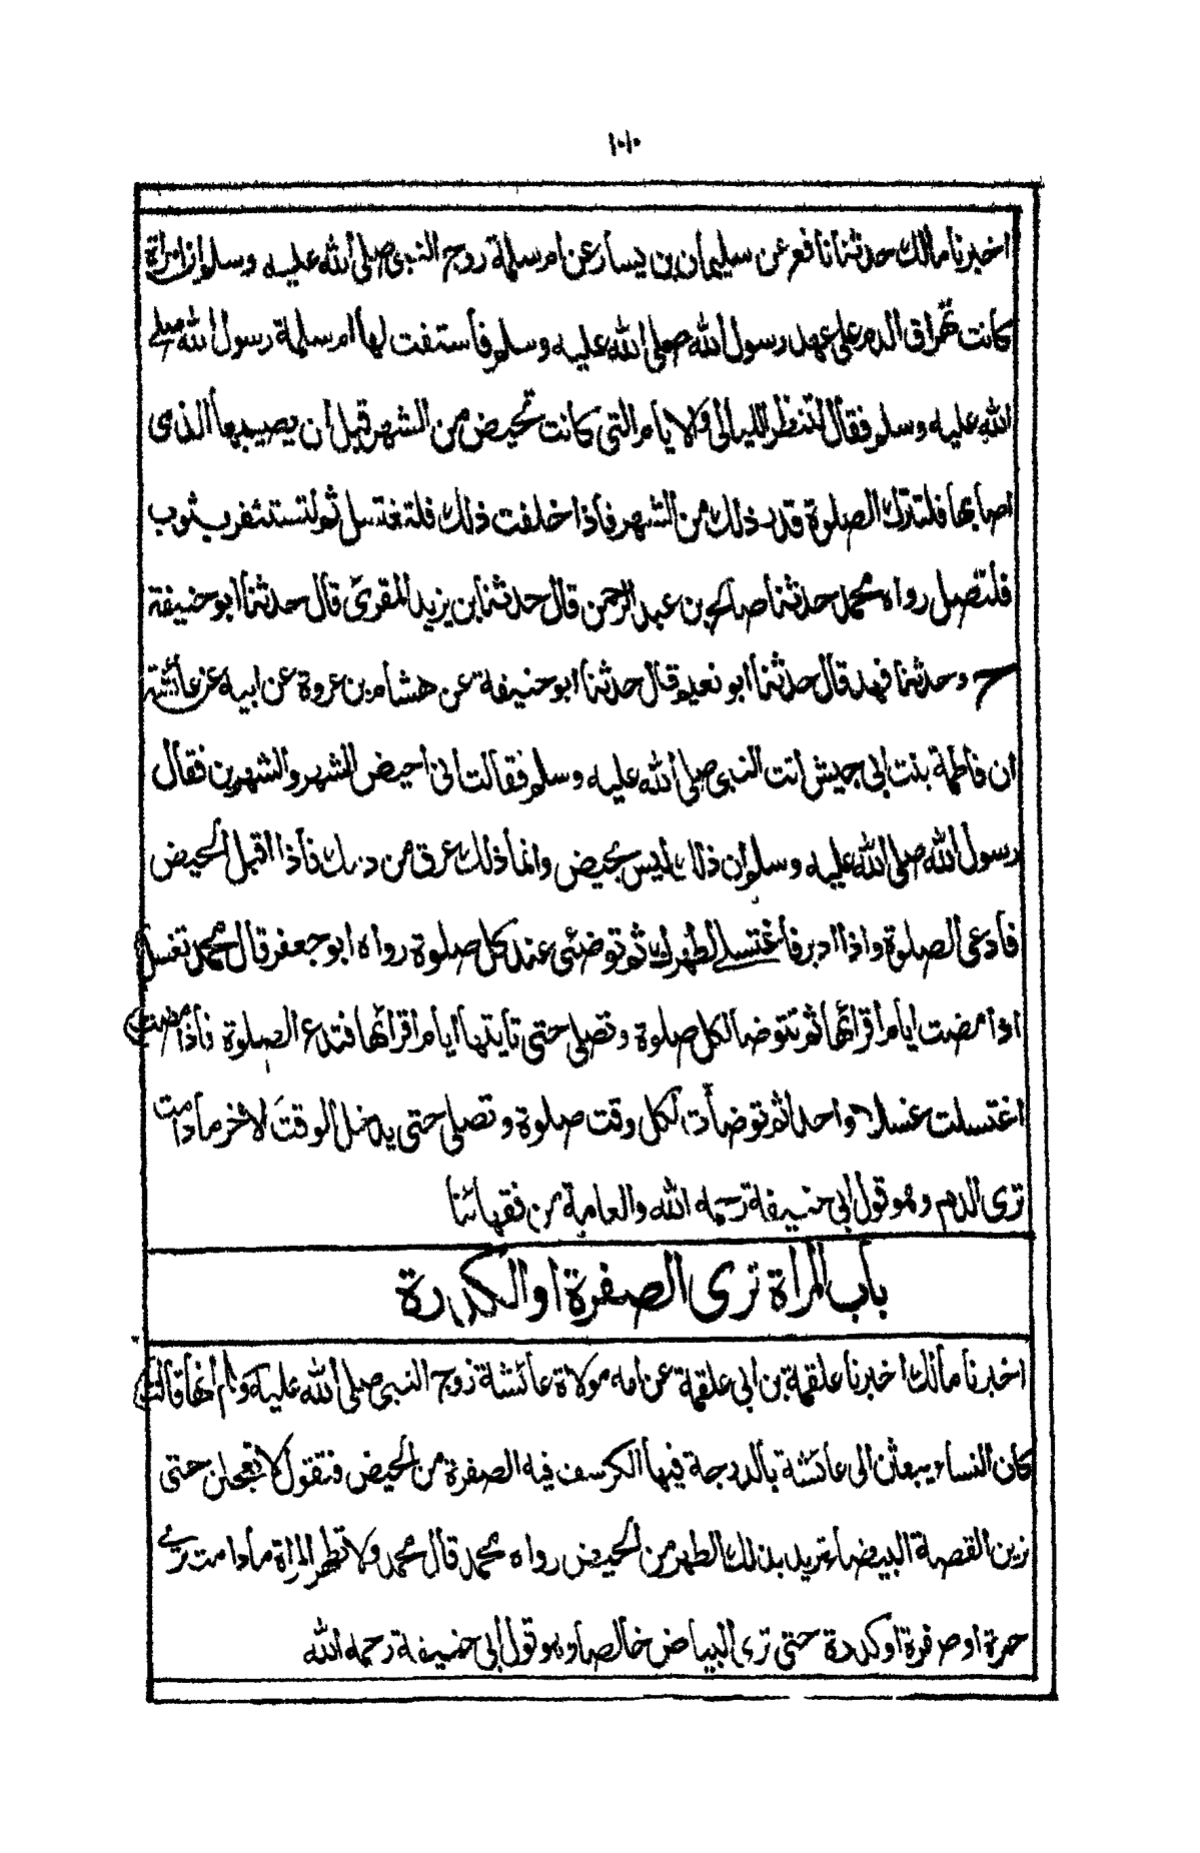 ١٠١٠
اخبرنا مالك حدثنا نافع عن سليمان بن يسار عن ام سلمة زوج النبى صلى الله عليه وسلم ان امراة
كانت تهراق الدم على عهد رسول الله صلى الله عليه وسلم فأستفت لها ام سلمة رسول الله صلے
الله عليه وسلم فقال لتنظر الليالى والايام التى كانت تحيض من الشهر قبل ان يصيبها الذى
اصابها فلتترك الصلوة قدر ذلك من الشهر فاذا خلفت ذلك فلتغتسل ثم لتستثفر بثوب
فلتصل رواه محمد حدثنا صالح بن عبد الرحمن قال حدثنا ابن يزيد المقرئ قال حدثنا ابو حنيفة
ح وحدثنا فهد قال حدثنا ابو نعيم قال حدثنا ابو حنيفة عن هشام بن عروة عن ابيه عن عائشة
ان فاطمة بنت ابى حبيش اتت النبى صلى الله عليه وسلم فقالت انى احيض الشهر والشهرين فقال
رسول الله صلى الله عليه وسلم ان ذلك ليس بحيض وانما ذلك عرق من دمك فاذا اقبل الحيض
فادعى الصلوة واذا ادبر فاغتسلى لطهرك ثم توضئى عند كل صلوة رواه ابو جعفر قال محمد تغسل
اذا مضت ايام اقرائها ثم تتوضا لكل صلوة وتصلى حتى تايتها ايام اقرائها فتدع الصلوة فاذا مضت
اغتسلت غسلا واحدا ثم توضأت لكل وقت صلوة وتصلى حتى يدخل الوقت لاخر مادامت
ترى الدم وهو قول ابى حنيفة رحمه الله والعامة من فقهائنا
باب المراة ترى الصفرة او الكدرة
اخبرنا مالك اخبرنا علقمة بن ابى علقمة عن امه مولاة عائشة زوج النبى صلى الله عليه وسلم انها قالت
كان النساء يبعثن الى عائشة بالدرجة فيها الكرسف فيه الصفرة من الحيض فتقول لا تعجلن حتى
ترين القصة البيضاء تريد بذلك الطهر من الحيض رواه محمد قال محمد ولا تطهر المراة مادامت ترے
حمرة او صفرة او كدرة حتى ترى البياض خالصا وهو قول ابى حنيفة رحمه الله